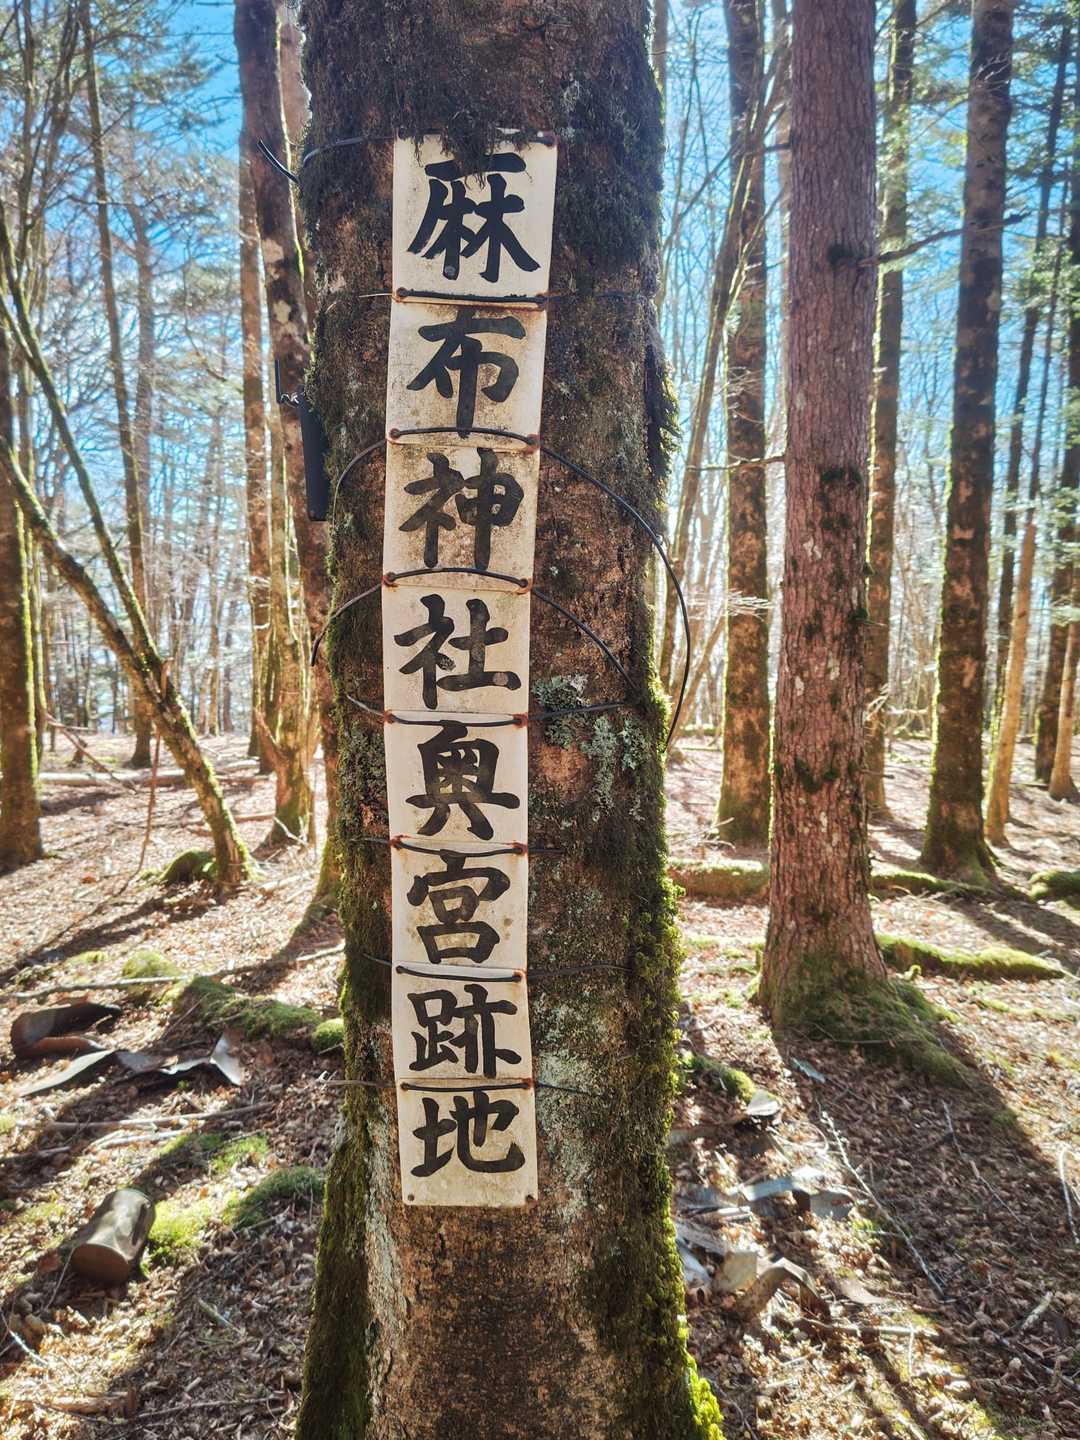 麻布神社奥宮跡地